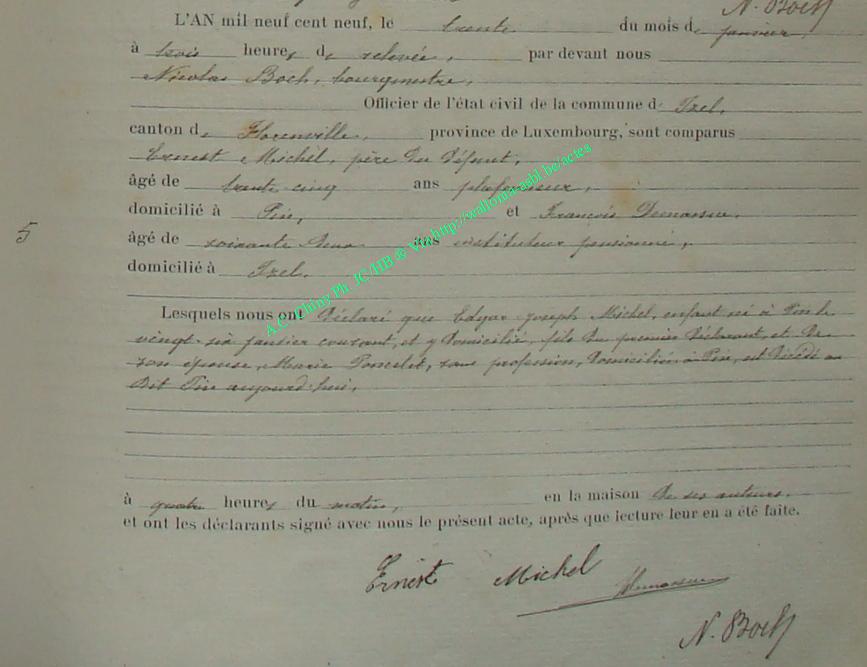 N. Boch
L'AN mil neuf cent neuf, le trente du mois de janvier,
à trois heures de relevée, par devant nous
Nicolas Boch, bourgmestre,
Officier de l'état civil de la commune d' Izel,
canton de Florenville, province de Luxembourg, sont comparus
Ernest Michel, père du défunt,
âgé de trente-cinq ans plafonneur,
domicilié à Pin, et François Demasson
5
âgé de soixante deux ans instituteur pensionné,
domicilié à Izel.
Lesquels nous ont déclaré que Edgar Joseph Michel, enfant né à Pin le
vingt-six janvier courant, et y domicilié, fils du premier déclarant, et de
son épouse, Marie Poncelet, sans profession, domiciliés à Pin, est décédé au
dit Pin aujourd'hui,
à quatre heures du matin, en la maison de ses auteurs.
et ont les déclarants signé avec nous le présent acte, après que lecture leur en a été faite.
Ernest Michel
N. Boch
A.C. Chiny Ph. JC/HB & Via http://wallonia-asbl.be/actes